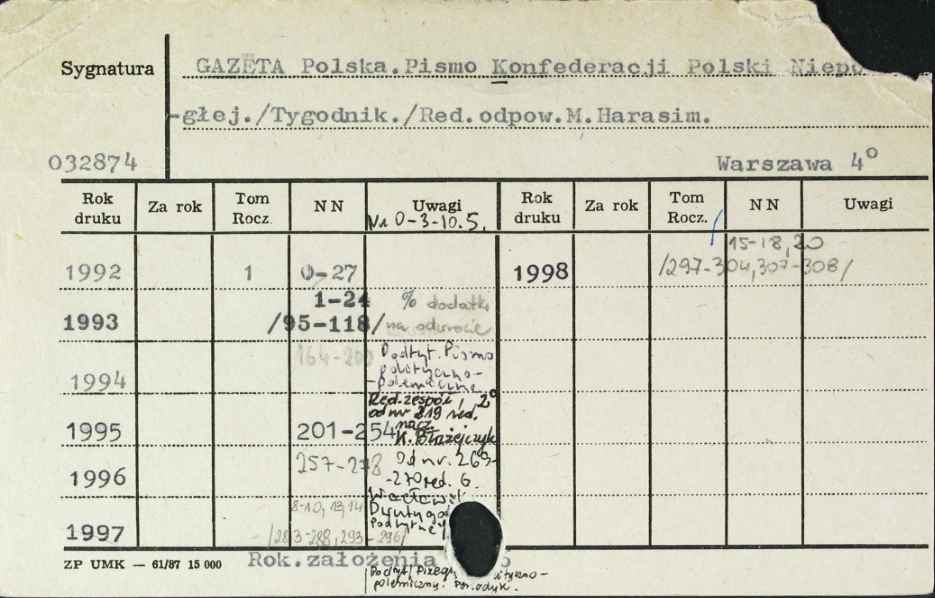 Sygnatura GAZETA Polska.Pismo Konfederacji Polski Niepo
-głej./Tygodnik./Red.odpow.M.Harasim.
032874 Warszawa 4°
Rok druku Za rok Tom Rocz. NN Uwagi Rok druku Za rok Tom Rocz. NN Uwagi
Nr 0-3-10.5.
1992 1 0-27 1998 15-18,20
/297-304,307-308/
1993 1-24 % dodatki
/95-118/ na odwrocie
1994 164-200 Podtyt. Pismo
polityczno-
-polemiczne
1995 201-254 Red.zespół, 2°
od nr 219 red.
nacz.
K. Błażejczyk
1996 257-278 Od nr. 269-
-270 red. G.
Wacławik
1997 8-10, 13,14 Dwutyg
/283-288, 293-296/ Podtyt
ZP UMK — 61/87 15 000 Rok.założenia
Podtyt. Przeg ityczno-
polemiczny.